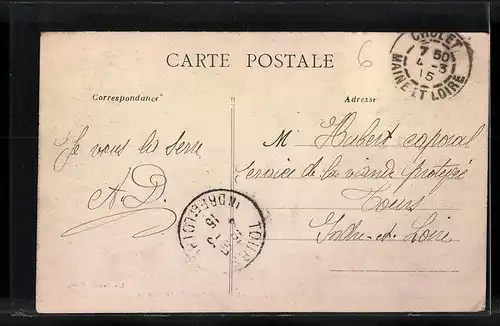 CARTE POSTALE
6
CHOLET
7 50
4 - 3
15
MAINE ET LOIRE
Correspondance
Adresse
Je vous la serre
A.D.
M Hubert caporal
service de la viande
Tours
Indre-et-Loire
TOURS
INDRE-ET-LOIRE
15